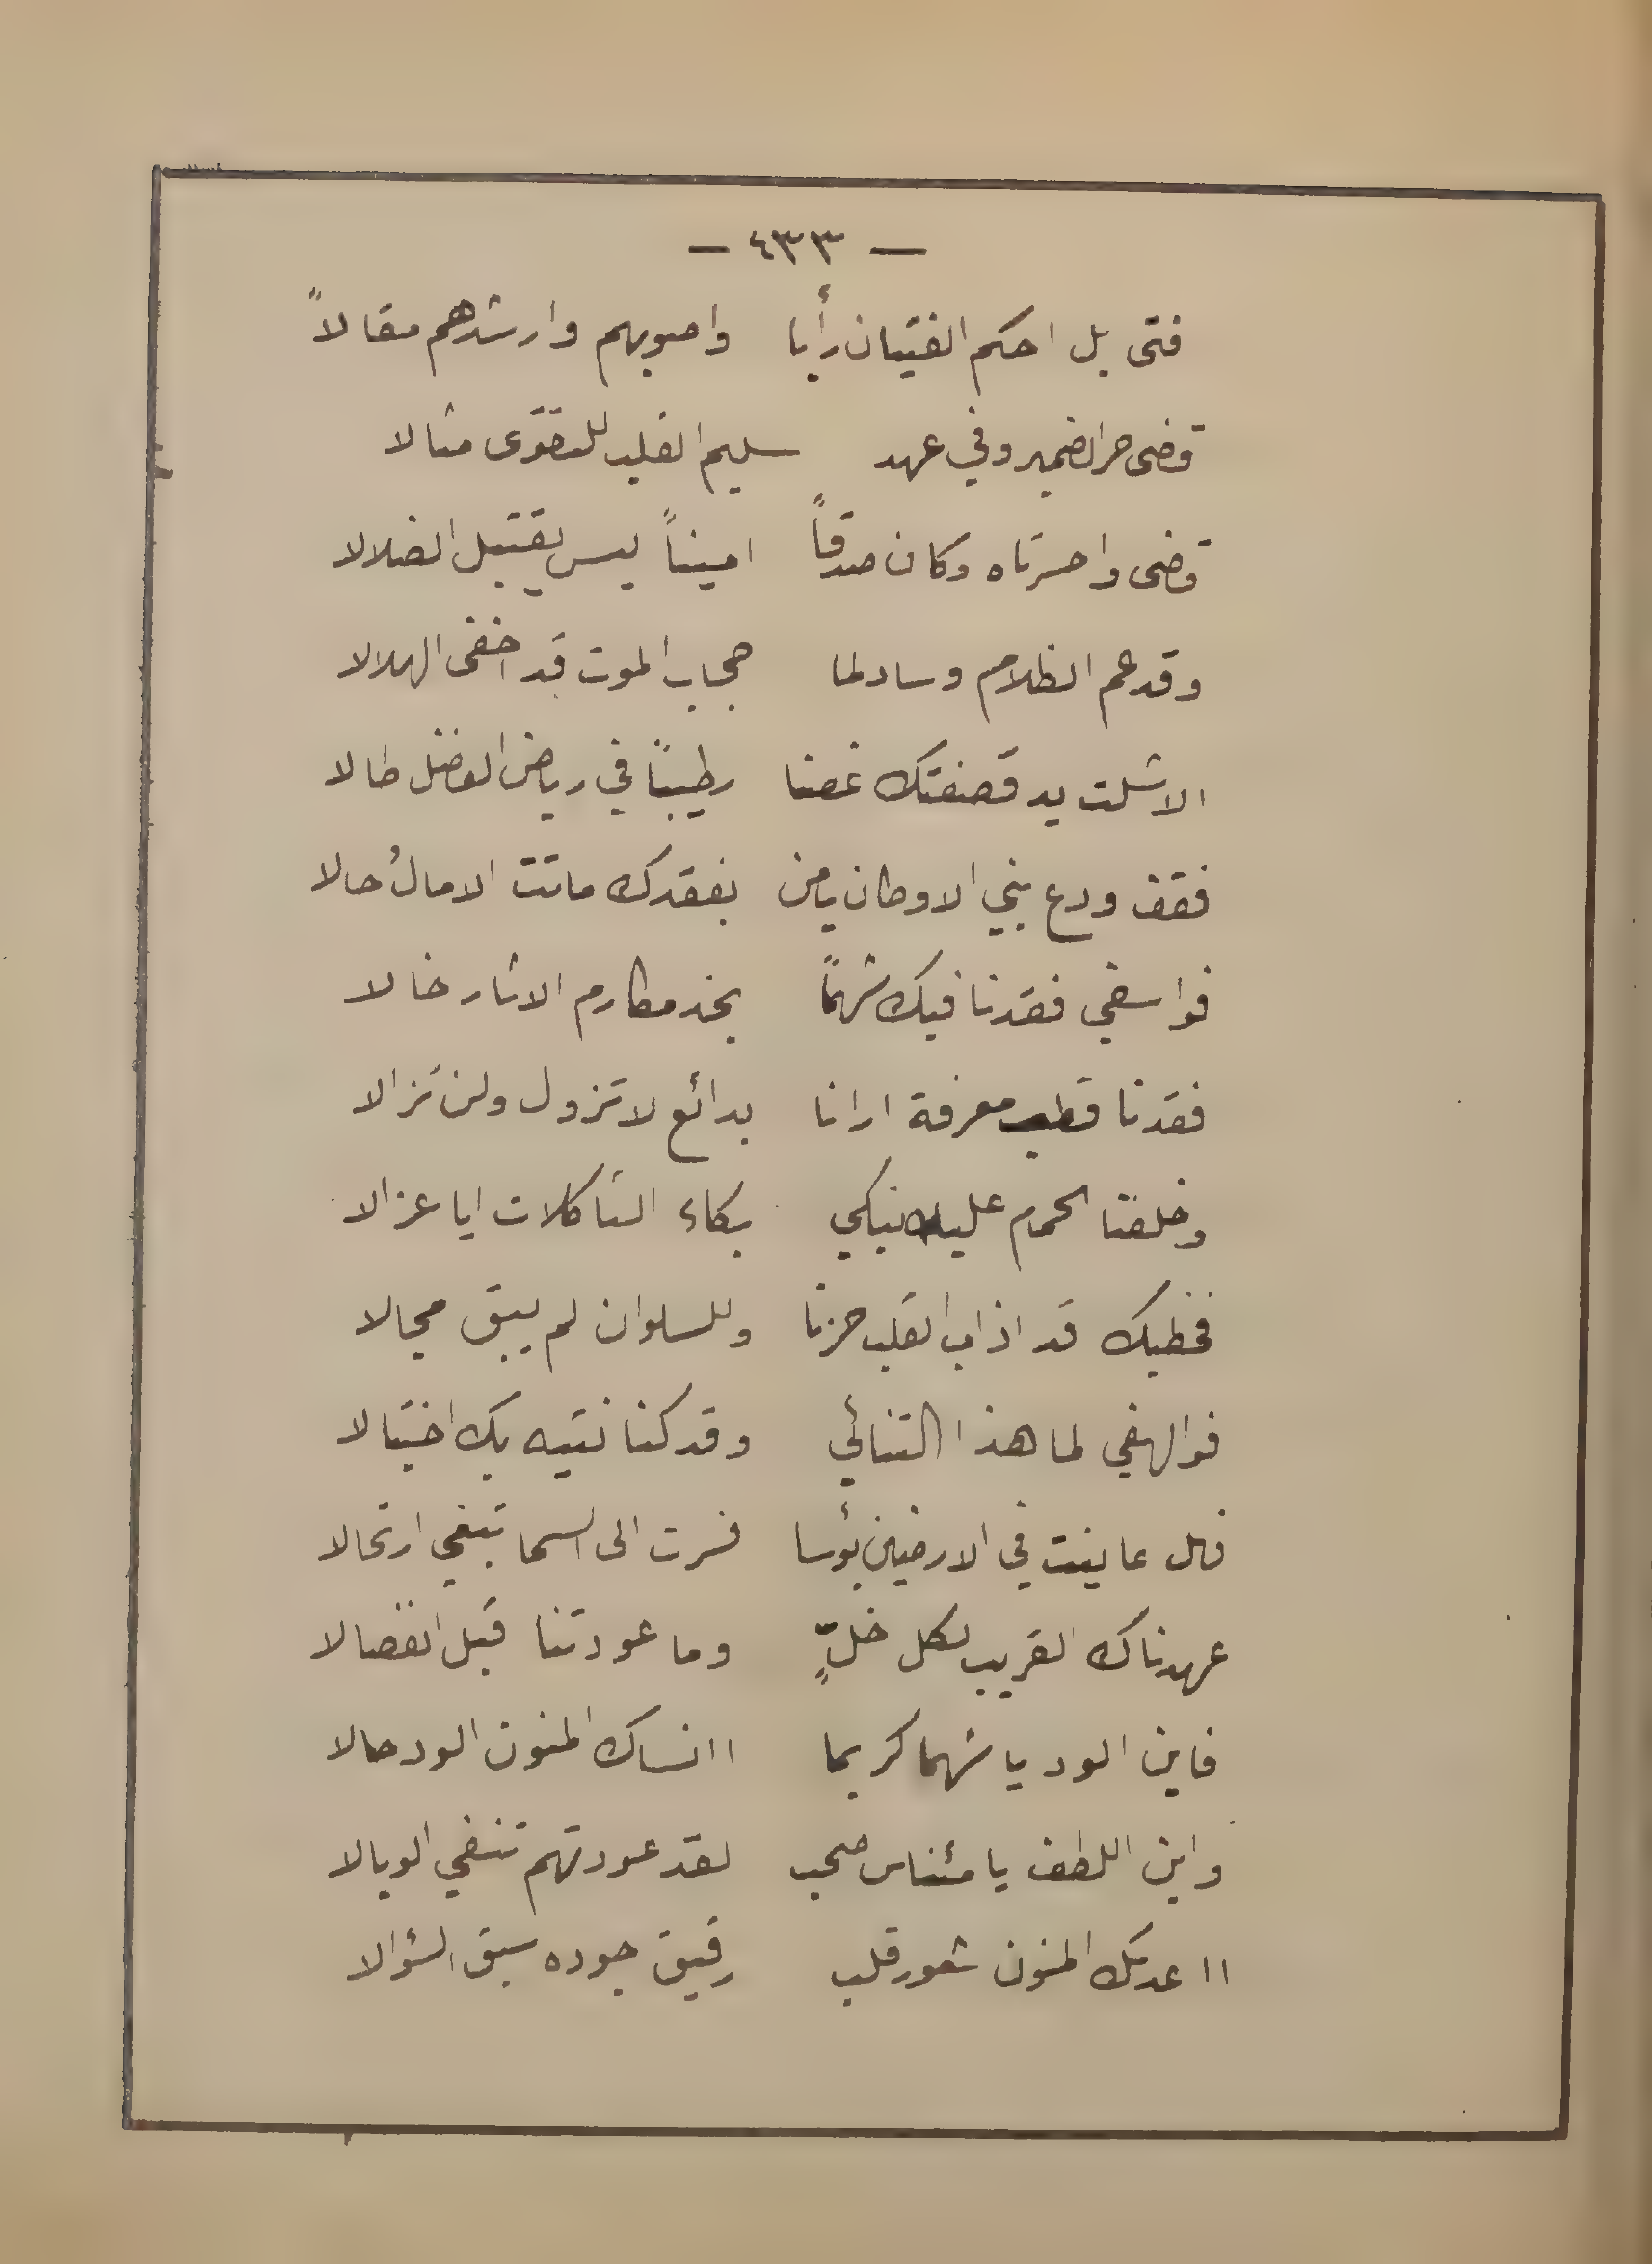 — ٤٣٣ —
فتى بل احكم الفتيان رأيا واصوبهم وارشدهم مقالاً
قضى حر الضمير وفي عهد سليم القلب للتقوى مثالا
قضى واحسرتاه وكان صدقاً اميناً ليس يقتبل الضلالا
وقد عم الظلام وساد لما حجاب الموت قد اخفى الهلالا
الا شلت يد قصفتك غصنا رطيباً في رياض الفضل طالا
فقف ودع بني الاوطان يا من بفقدك ماتت الامالُ حالا
فوا سفي فقدنا فيك شهماً بخد مكارم الاثار خالا
فقدنا قطب معرفة ارانا بدائع لا تزول ولن تزالا
وخلفنا الحمام عليك نبكي بكاء الثاكلات ايا عزالا
فخطبك قد اذاب القلب حزنا وللسلوان لم يبق مجالا
فوا لهفي لما هذا التنائي وقد كنا نتيه بك اختيالا
فهل عاينت في الارضين بؤسا فسرت الى السما تبغي ارتحالا
عهدناك القريب لكل خلٍّ وما عودتنا قبل انفصالا
فاين الود يا شهما كريما اانساك المنون الود حالا
واين اللطف يا مئناس صحب لقد عودتهم تنفي الوبالا
ااعدمك المنون شعور قلب رقيق جوده سبق السؤالا